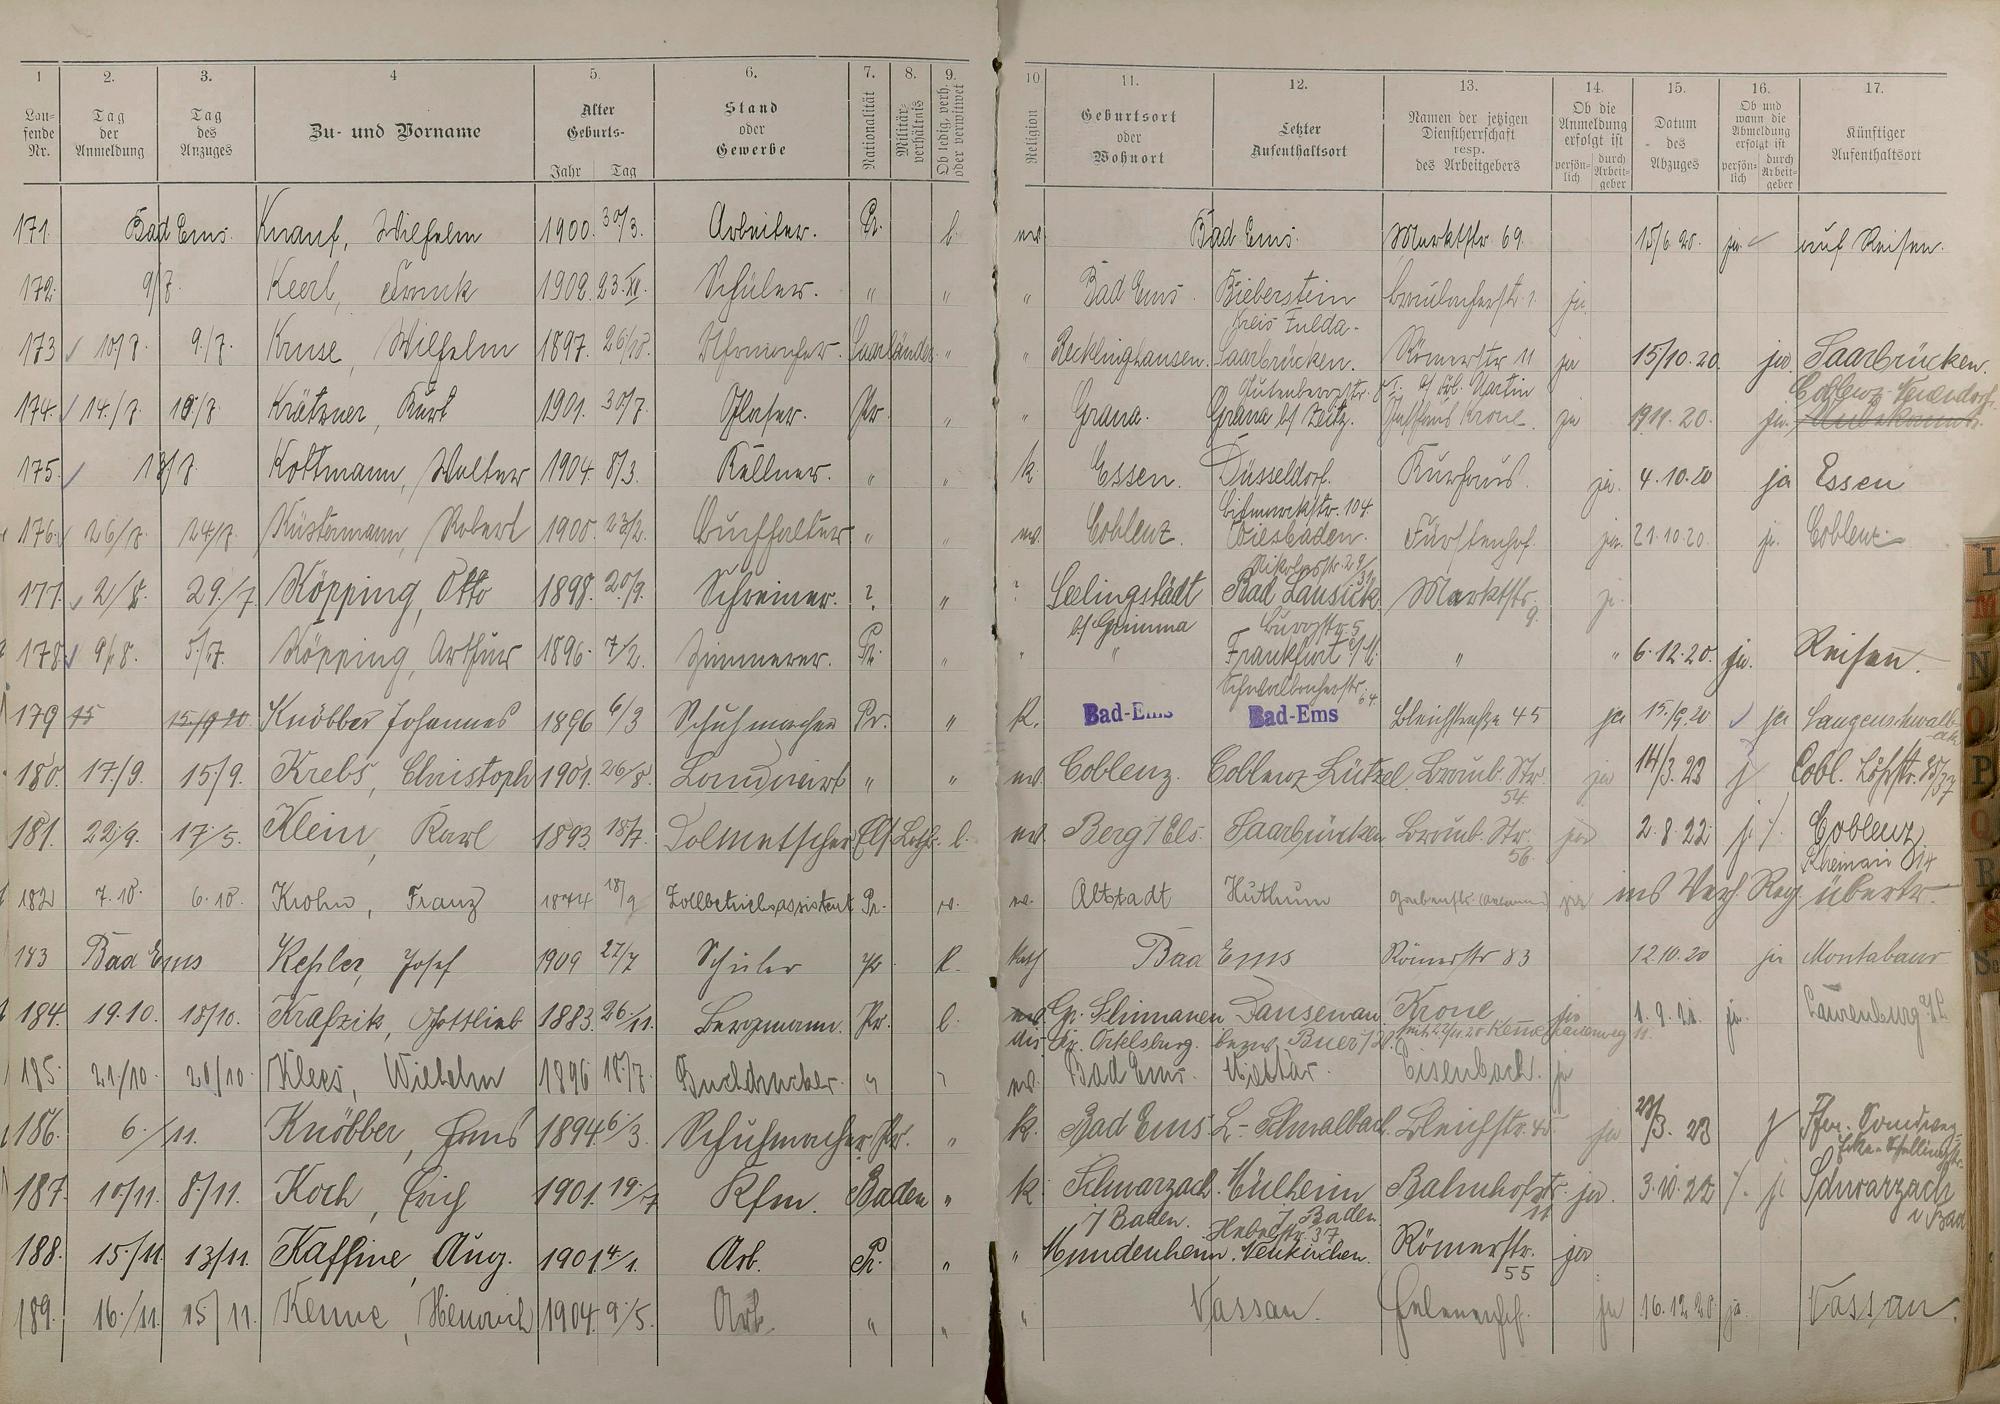 1 2. 3. 4 5. 6. 7. 8. 9. 10 11. 12. 13. 14. 15. 16. 17.
Lau-
fende
Nr.
Tag
der
Anmeldung
Tag
des
Anzuges
Zu- und Vorname
Alter
Geburts-
Jahr Tag
Stand
oder
Gewerbe
Nationalität
Militär-
verhältnis
Ob ledig, verh.
oder verwitwet
Religion
Geburtsort
oder
Wohnort
Letzter
Aufenthaltsort
Namen der jetzigen
Dienstherrschaft
resp.
des Arbeitgebers
Ob die
Anmeldung
erfolgt ist
persön-
lich
durch
Arbeit-
geber
Datum
des
Abzuges
Ob und
wann die
Abmeldung
erfolgt ist
persön-
lich
durch
Arbeit-
geber
Künftiger
Aufenthaltsort
171. Bad Ems. Knauf, Wilhelm 1900. 30/3. Arbeiter. Pr. l. ev. Bad Ems. Marktstr. 69. 15/6 20. ja. auf Reisen.
172. 9/7. Keerl, Frank 1902. 23.XII. Schüler. " " " Bad Ems. Bieberstein Braubacherstr. 1. ja.
Kreis Fulda-
173 10/7 9./7. Kruse, Wilhelm 1897. Saarländer. " " Recklinghausen. Saarbrücken. Römerstr 11 ja 15/10.20. ja. Saarbrücken.
Gutenbergstr. Martin Coblenz-Neuendorf.
174. 14./7 Krätzner, Kurt 1901. 30/7. Glaser. Pr. " " Grana. Grana b/ Zeitz. Gasthaus Krone. ja 20. ja.
175. 13/7 Kottmann, Walter 1904. 8/3. Kellner. " " k. Essen. Düsseldorf. Kurhaus. ja. 4.10.20 ja Essen
Bismarckstr. 104.
176. 26/7 24/7. Küstermann, Robert 1900. 23/2. Buchhalter " " ev. Coblenz. Wiesbaden. Fürstenhof. ja. 21.10.20. ja. Coblenz.
Nikolasstr. 29/31
177. 2/8. 29./7 Köpping, Otto 1898. 20/9. Schreiner. ? " ? Seelingstädt Bad Lausick Marktstr. 9. ja.
b/ Grimma Burgstr. 5
178. 9/8. 5./7. Köpping, Arthur 1896. 7/2. Zimmerer. Pr. " " " Frankfurt a/M. " " 6.12.20. ja. Reisen.
Schwalbacherstr. 64.
179 15 15./9 20 Knöbber Johannes 1896 6/3 Schuhmacher Pr. " K. Bad-Ems Bad-Ems Bleichstraße 45 ja 15./9.20 ja Langenschwalb-
ach
180. 17./9. 15/9. Krebs, Christoph 1901. 26/8. Landwirt " " ev. Coblenz. Coblenz Lützel. Braub. Str. 54. ja 14/3. 23 j Cobl. Löhrstr. 35/37
181. 22./9. 17./5. Klein, Karl 1893. 18/7. Dolmetscher Els. Lothr. l. ev. Berg / Els. Saarbrücken Braub. Str. 56. ja 2.8.22 j. /. Coblenz
182 7.10. 6.10. Krohn, Franz 1874 18/9 Zollbetriebsassistent Pr. v. ev. Altstadt ja ins Verh. Reg. übertr.
183 Bad Ems Keßler, Josef 1909 27/7 Schüler Pr K. Kath Bad Ems Römerstr 83 12.10.20 ja Montabaur
184. 19.10. 18/10. Krafzik, Gottlieb 1883. 26/11. Bergmann. Pr. l. Dausenau Krone ja 1.9.21. ja. Laurenburg a/L
Kr. Ortelsburg. bezw. Buer
185. 21/10 20/10. Klees, Wilhelm 1896 18./7. Buchdrucker. " " ev. Bad Ems. Eisenbach. ja
186. 6./11. Knöbber, Hans 1894 6/3. Schuhmacher. Pr. " k. Bad Ems. L.-Schwalbach. Bleichstr. 45 ja 28/3. 23 j
187. 10/11. 8./11. Koch, Erich 1901. 19/7 Kfm. Baden " k. Schwarzach. Mülheim Bahnhofstr. ja. 3.10.22 /. j Schwarzach
i/ Baden. i/ Baden i Bad
Hebelstr. 37
188. 15./11 13/11. Kaffine, Aug. 1901 4/1. Arb. Pr. " " Mundenheim. Neukirchen. Römerstr. 55 ja
189. 16./11. 15/11. Kenne, Heinrich 1904. 9./5. Arb. " " " Nassau. ja 16.12.20 ja. Nassau.
L
M
N
O
P
Q
R
S